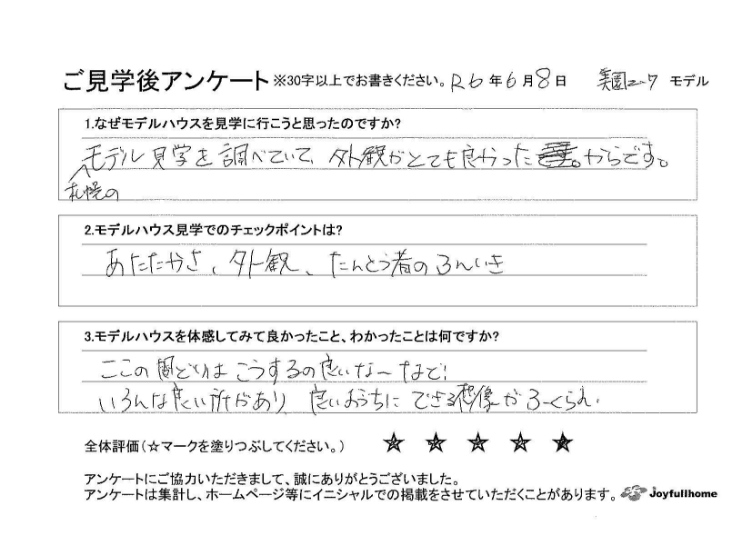 ご見学後アンケート ※30字以上でお書きください。 R6年6月8日 美園2-7 モデル
1.なぜモデルハウスを見学に行こうと思ったのですか?
札幌のモデル見学を調べていて、外観がとても良かったからです。
2.モデルハウス見学でのチェックポイントは?
あたたかさ、外観、たんとう者のふんいき
3.モデルハウスを体感してみて良かったこと、わかったことは何ですか?
ここの間どりはこうするの良いな〜など!
いろんな良い所があり 良いおうちにできる想像がふくらん
全体評価(☆マークを塗りつぶしてください。) ★ ★ ★ ★ ★
アンケートにご協力いただきまして、誠にありがとうございました。
アンケートは集計し、ホームページ等にイニシャルでの掲載をさせていただくことがあります。 Joyfullhome